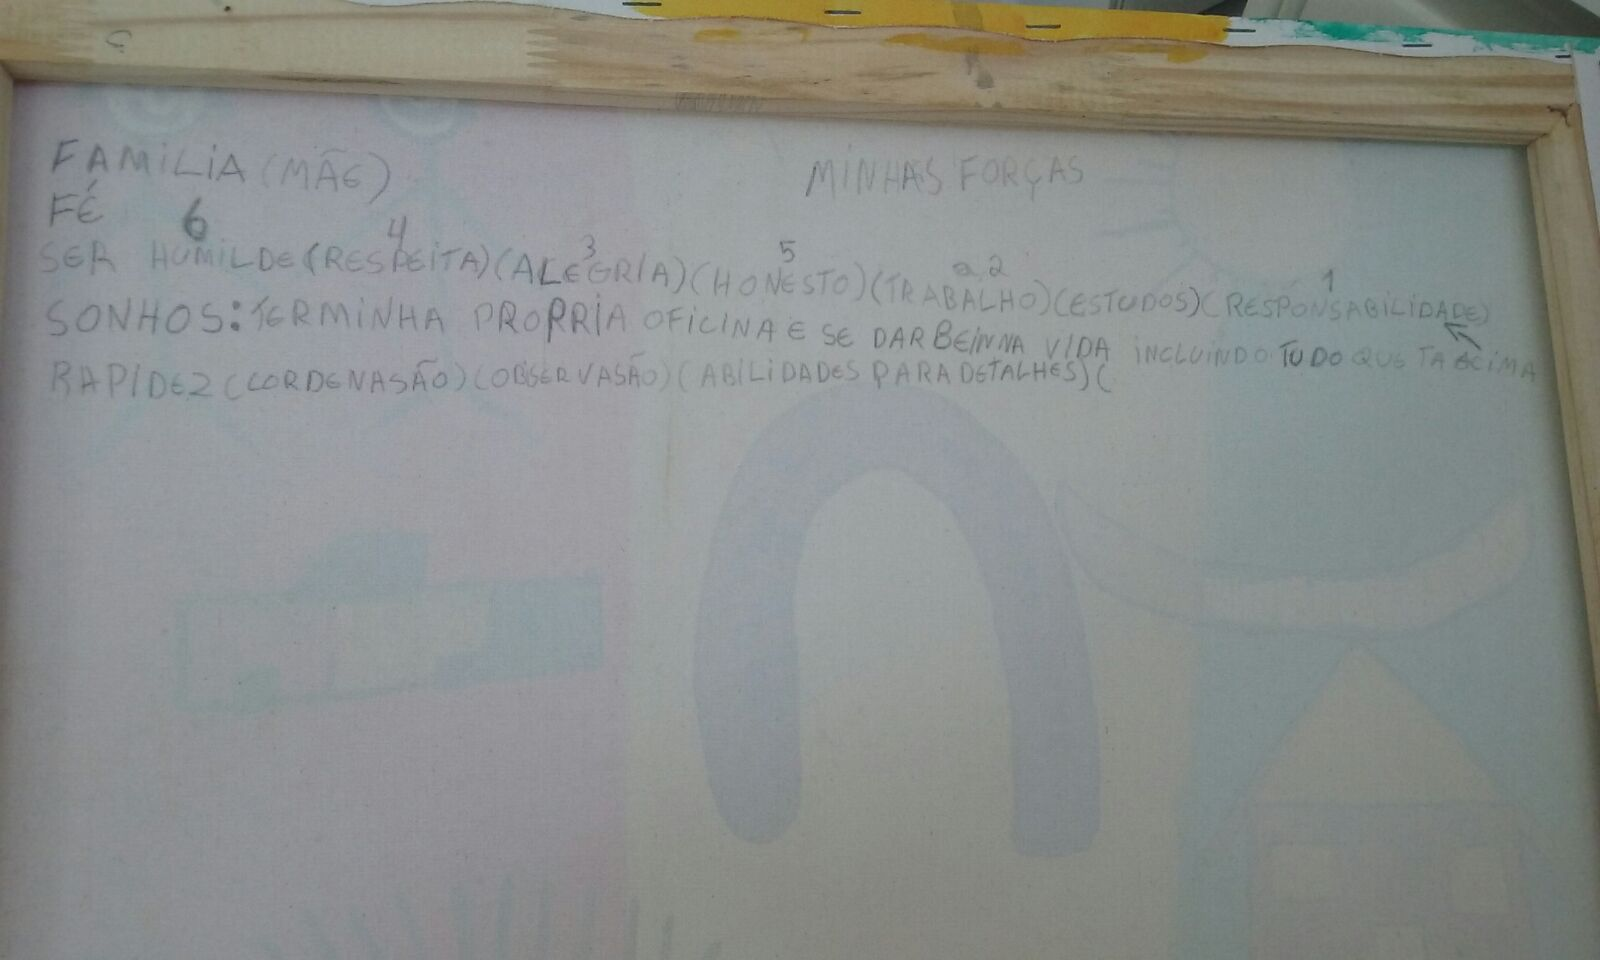 FAMILIA (MÃE)
MINHAS FORÇAS
FÉ
6 4 3 5 a 2 1
SER HUMILDE (RESPEITA) (ALEGRIA) (HONESTO) (TRABALHO) (ESTUDOS) (RESPONSABILIDADE)
SONHOS: TER MINHA PROPRIA OFICINA E SE DAR BEIN NA VIDA INCLUINDO TUDO QUE TA ACIMA
RAPIDEZ (CORDENASÃO) (OBSERVASÃO) (ABILIDADES PARA DETALHES) (